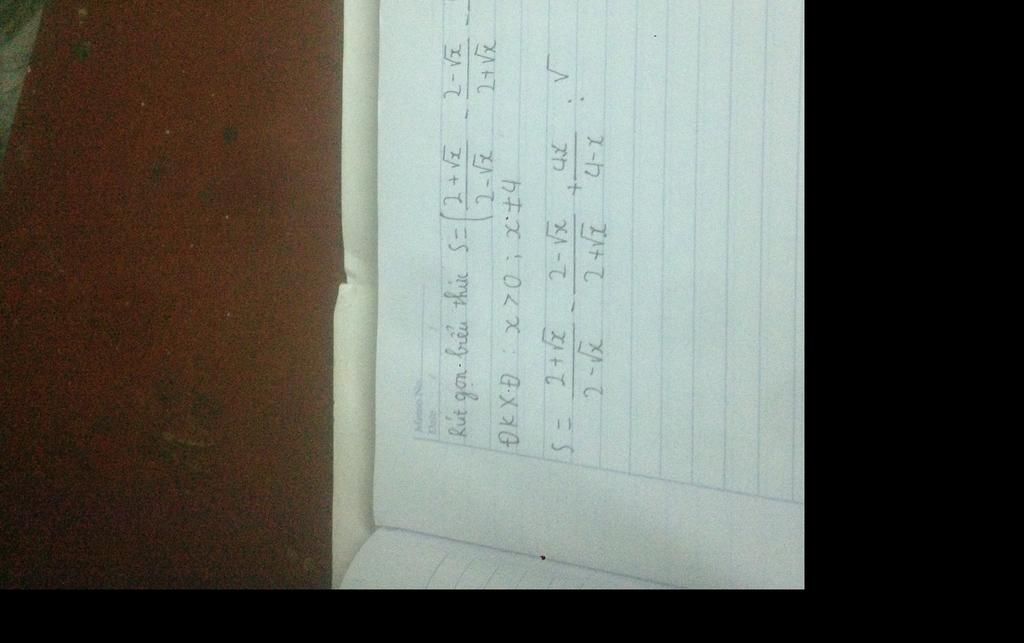 Memo No.
Date / /
Rút gọn biểu thức S = ( \frac{2+√x}{2-√x} - \frac{2-√x}{2+√x} -
ĐKXĐ : x > 0 ; x ≠ 4
S = \frac{2+√x}{2-√x} - \frac{2-√x}{2+√x} + \frac{4x}{4-x} : √